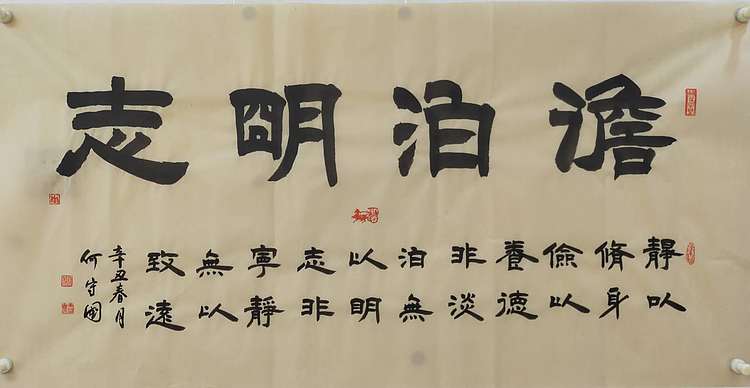 澹泊朙志
靜以
脩身
儉以
養德
非淡
泊無
以明
志非
寧靜
無以
致遠
辛丑春月
何守國